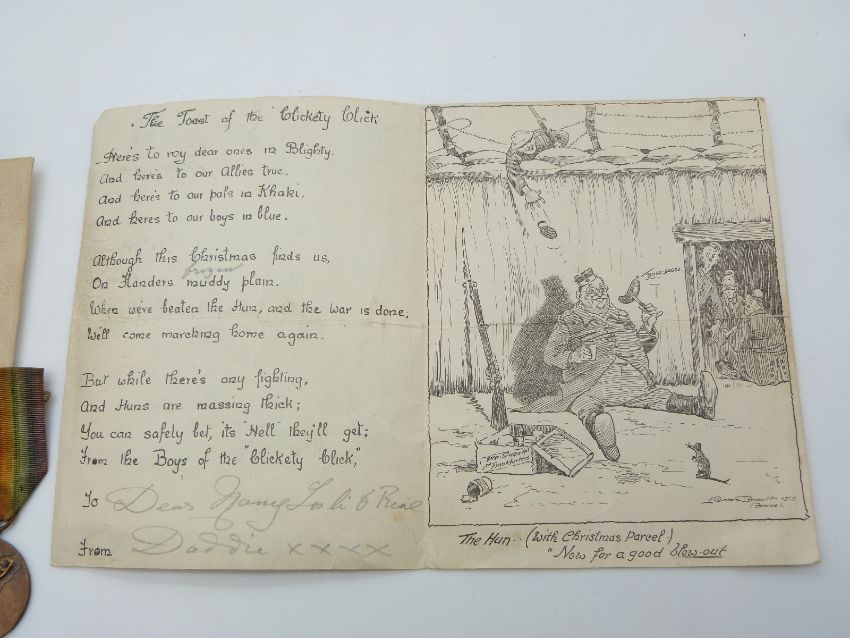 The Toast of the "Clickety Click
Here's to my dear ones in Blighty.
And here's to our Allies true.
And here's to our pals in Khaki.
And heres to our boys in blue.
Although this Christmas finds us,
frozen
On Flanders muddy plain.
When we're beaten the Hun, and the war is done;
We'll come marching home again.
But while there's any fighting,
And Huns are massing thick;
You can safely bet, its "Hell" they'll get;
From the Boys of the "Clickety Click,"
To Dear Nancy &
From Daddie x x x x
1917.
The Hun.. (With Christmas Parcel.)
"Now for a good blow-out